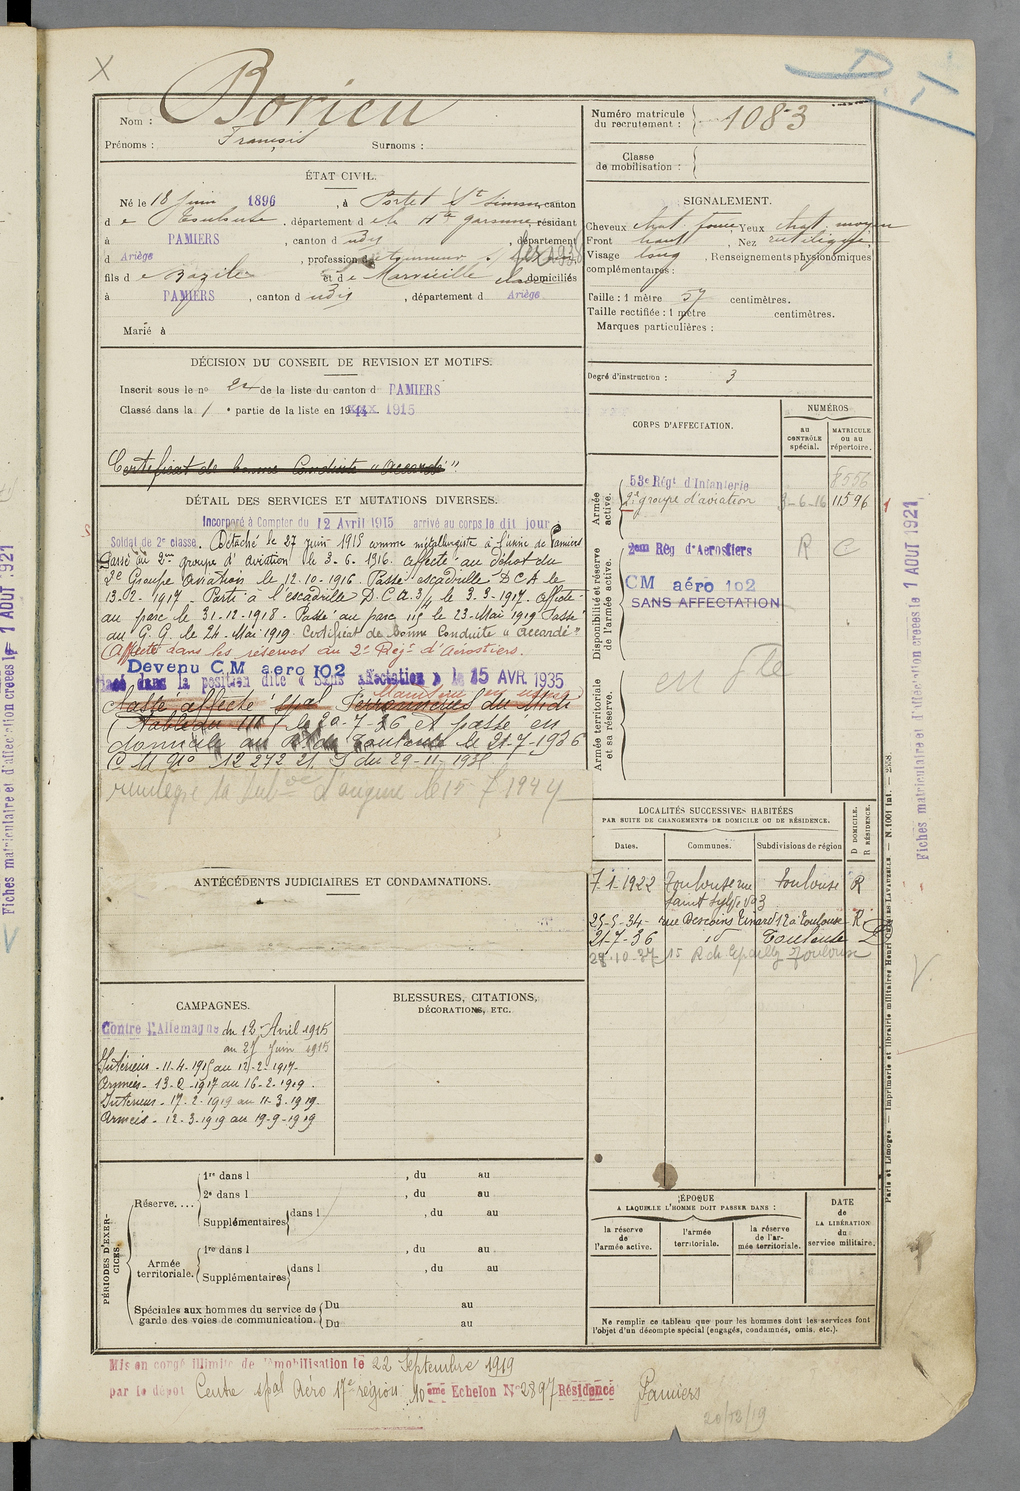 X
D I
Nom : Borieu
Prénoms : François Surnoms :
Numéro matricule
du recrutement : 1083
Classe
de mobilisation :
ÉTAT CIVIL.
Né le 18 Juin 1896, à Portet St Simon, canton
d e Toulouse, département d e la Hte Garonne, résidant
à PAMIERS, canton d udis, département
d Ariège, profession de tourneur s/
fils d e Bazile et d e domiciliés
à PAMIERS, canton d udis, département d Ariège
Marié à
SIGNALEMENT.
Cheveux chat foncé Yeux chat moyen
Front haut, Nez rectiligne,
Visage long, Renseignements physionomiques
complémentaires :
Taille : 1 mètre 57 centimètres.
Taille rectifiée : 1 mètre centimètres.
Marques particulières :
Degré d'instruction : 3
DÉCISION DU CONSEIL DE REVISION ET MOTIFS.
Inscrit sous le n° de la liste du canton d PAMIERS
Classé dans la 1e partie de la liste en 1915
Certificat de bonne Conduite "Accordé"
CORPS D'AFFECTATION.
NUMÉROS
au
CONTRÔLE
spécial.
MATRICULE
ou au
répertoire.
Armée
active.
53e Régt d'Infanterie 8556
2e groupe d'aviation 3-6-16 11596
Disponibilité et réserve
de l'armée active.
2em Rég d'Aerostiers R C
CM aéro 102
SANS AFFECTATION
Armée territoriale
et sa réserve.
DÉTAIL DES SERVICES ET MUTATIONS DIVERSES.
Incorporé à Compter du 12 Avril 1915 arrivé au corps le dit jour
Soldat de 2e classe. Détaché le 27 juin 1915 comme métallurgiste à l'usine de Pamiers
Passé au 2me groupe d'aviation le 3.6.1916. affecté au dépôt du
2e Groupe Aviation le 12.10.1916. Passé escadrille D.C.A le
13.2.1917. Parti à l'escadrille D.C.A. 3/4 le 3.3.1917. affecté
au parc le 31.12.1918. Passé au parc 115 le 23 Mai 1919 Passé
au G.G. le 24 Mai 1919. Certificat de bonne Conduite "accordé"
Affecté dans les réserves au 2e Régt d'Aerostiers.
Devenu C.M aero 102
Placé dans la position dite « Sans affectation » le 15 AVR 1935
Passé affecté spal
le 20-7-36 et passé en
domicile au R. de Toulouse le 21-7-1936
C.M. N° 12272
le 15-7 1944
LOCALITÉS SUCCESSIVES HABITÉES
PAR SUITE DE CHANGEMENTS DE DOMICILE OU DE RÉSIDENCE.
Dates. Communes. Subdivisions de région
D DOMICILE.
R RÉSIDENCE.
7.1.1922 Toulouse rue Toulouse R
25-5-34- rue Descoins Tinard 12 à Toulouse - R
21-7-36 id Toulouse D
28.10.37 15 R de Toulouse
ANTÉCÉDENTS JUDICIAIRES ET CONDAMNATIONS.
CAMPAGNES.
Contre l'Allemagne du 12 Avril 1915
au 27 Juin 1915
Intérieur - 11-4-1915 au 12-2-1917-
Armées - 13-2-1917 au 16-2-1919.
Intérieur - 17-2-1919 au 11-3-1919.
Armées - 12-3-1919 au 19-9-1919
BLESSURES, CITATIONS,
DÉCORATIONS, ETC.
PÉRIODES D'EXERCICES.
Réserve....
1re dans l , du au
2e dans l , du au
Supplémentaires dans l , du au
Armée
territoriale.
1re dans l , du au
Supplémentaires dans l , du au
Spéciales aux hommes du service de
garde des voies de communication.
Du au
Du au
ÉPOQUE
A LAQUELLE L'HOMME DOIT PASSER DANS :
la réserve
de
l'armée active.
l'armée
territoriale.
la réserve
de l'ar-
mée territoriale.
DATE
de
LA LIBÉRATION
du
service militaire.
Ne remplir ce tableau que pour les hommes dont les services font
l'objet d'un décompte spécial (engagés, condamnés, omis, etc.).
Mis en congé illimité de démobilisation le 22 Septembre 1919
par le dépôt Centre spal Aéro 17e région 10 eme Echelon N° 2897 Résidence Pamiers
20/12/19
Fiches matriculaire et d'affectation creées le 1 AOUT 1921
Fiches matriculaire et d'affectation creées le 1 AOUT 1921
Paris et Limoges. — Imprimerie et librairie militaires Henri Charles-Lavauzelle. — N. 1001 int. — 2558.